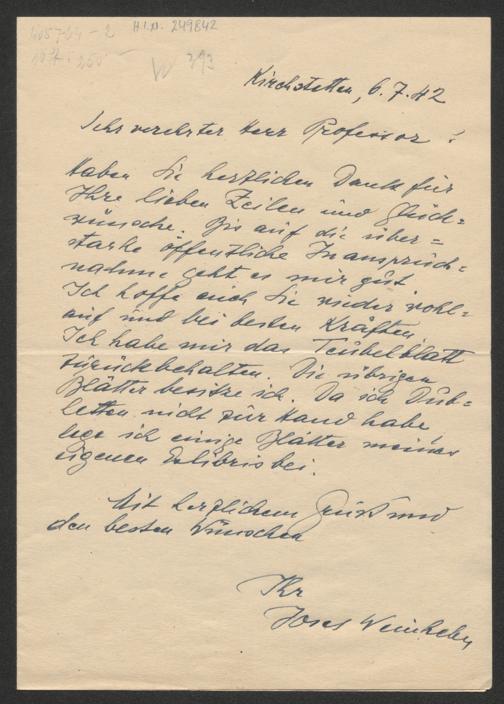 H.I.N. 249842
W 393
Kirchstetten, 6.7.42
Sehr verehrter Herr Professor!
Haben Sie herzlichen Dank für
Ihre lieben Zeilen und Glück=
wünsche. Bis auf die über=
starke öffentliche Inanspruch=
nahme geht es mir gut.
Ich hoffe auch Sie wieder wohl=
auf und bei besten Kräften.
Ich habe mir das Teubelblatt
zurückbehalten. Die übrigen
Blätter besitze ich. Da ich Dub=
letten nicht zur Hand habe
lege ich einige Blätter meines
eigenen Exlibris bei.
Mit herzlichem Gruß und
den besten Wünschen
Ihr
Josef Weinheber